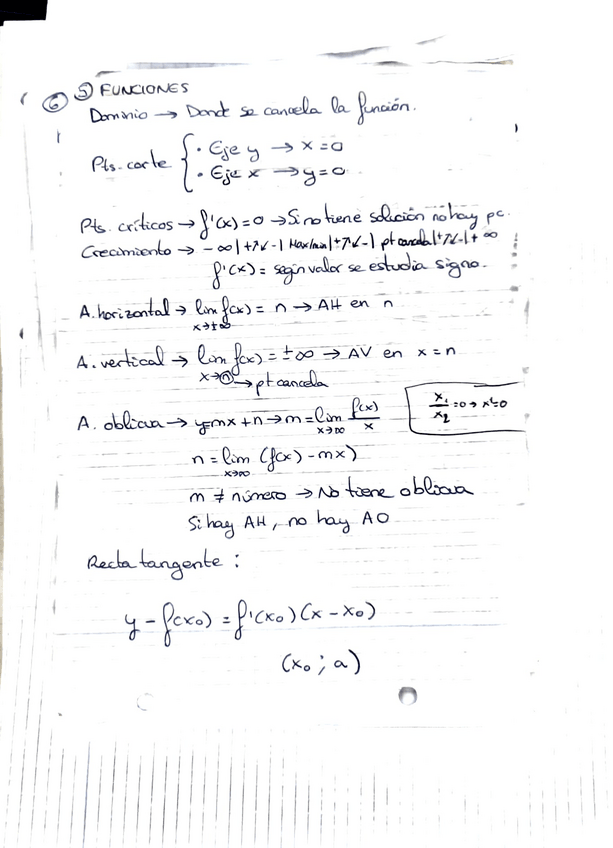 ⑥ ⑤ FUNCIONES
Dominio → Donde se cancela la función.
Pts. corte { • Eje y → x = 0
• Eje x → y = 0
Pts. críticos → f'(x) = 0 → Si no tiene solución no hay pc.
Crecimiento → -∞ | +↗↙- | Max/min | +↗↙- | pt cancela | +↗↙- | + ∞
f'(x) = según valor se estudia signo.
A. horizontal → lim f(x) = n → AH en n
x→±∞
A. vertical → lim f(x) = ± ∞ → AV en x = n
x→ⓝ → pt cancela
A. oblicua → y=mx+n → m = lim f(x)/x
x→∞
x₁/x₂ = 0 → x₁=0
n = lim (f(x) - mx)
x→∞
m ≠ número → No tiene oblicua
Si hay AH, no hay AO
Recta tangente :
y - f(x₀) = f'(x₀) (x - x₀)
(x₀ ; a)